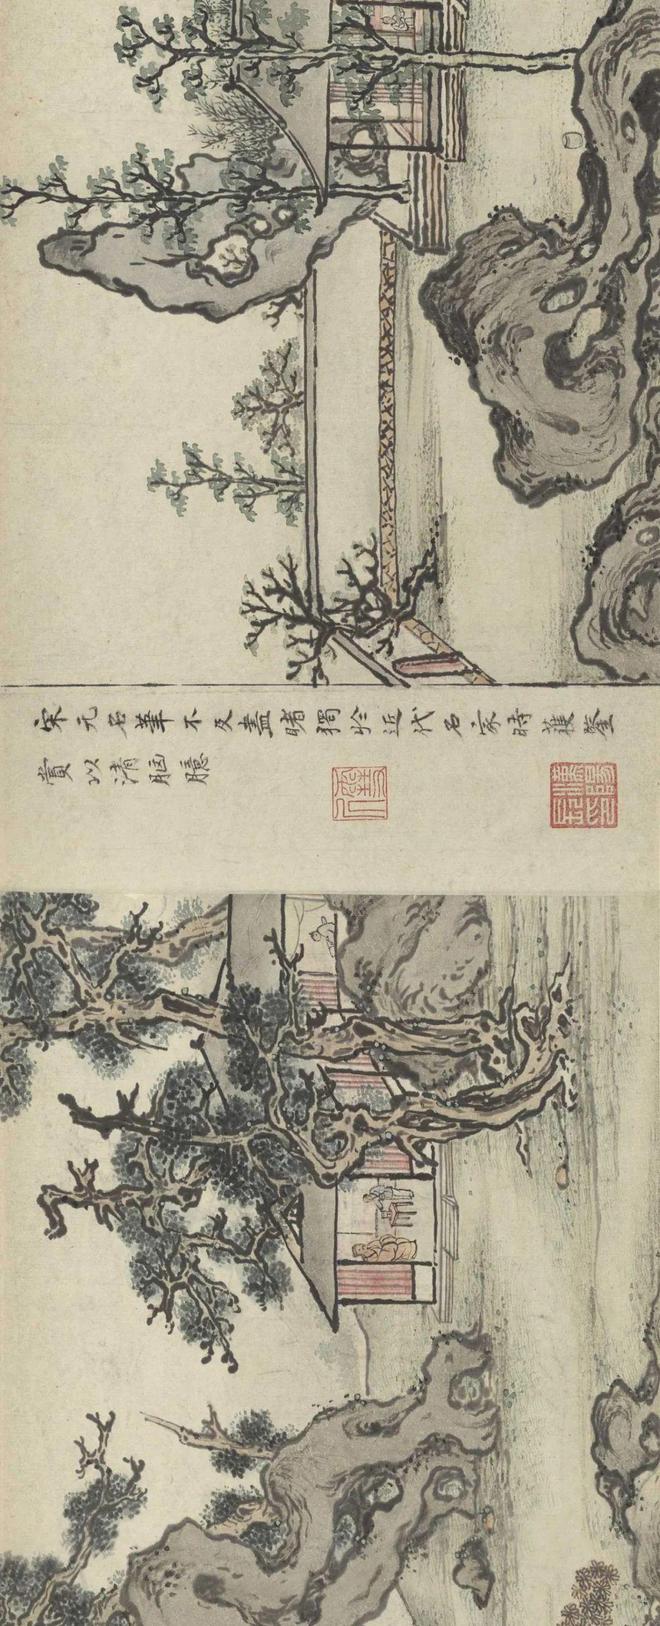 宋元名筆不及盡睹獨於近代名家時獲鑒
賞以清胸臆